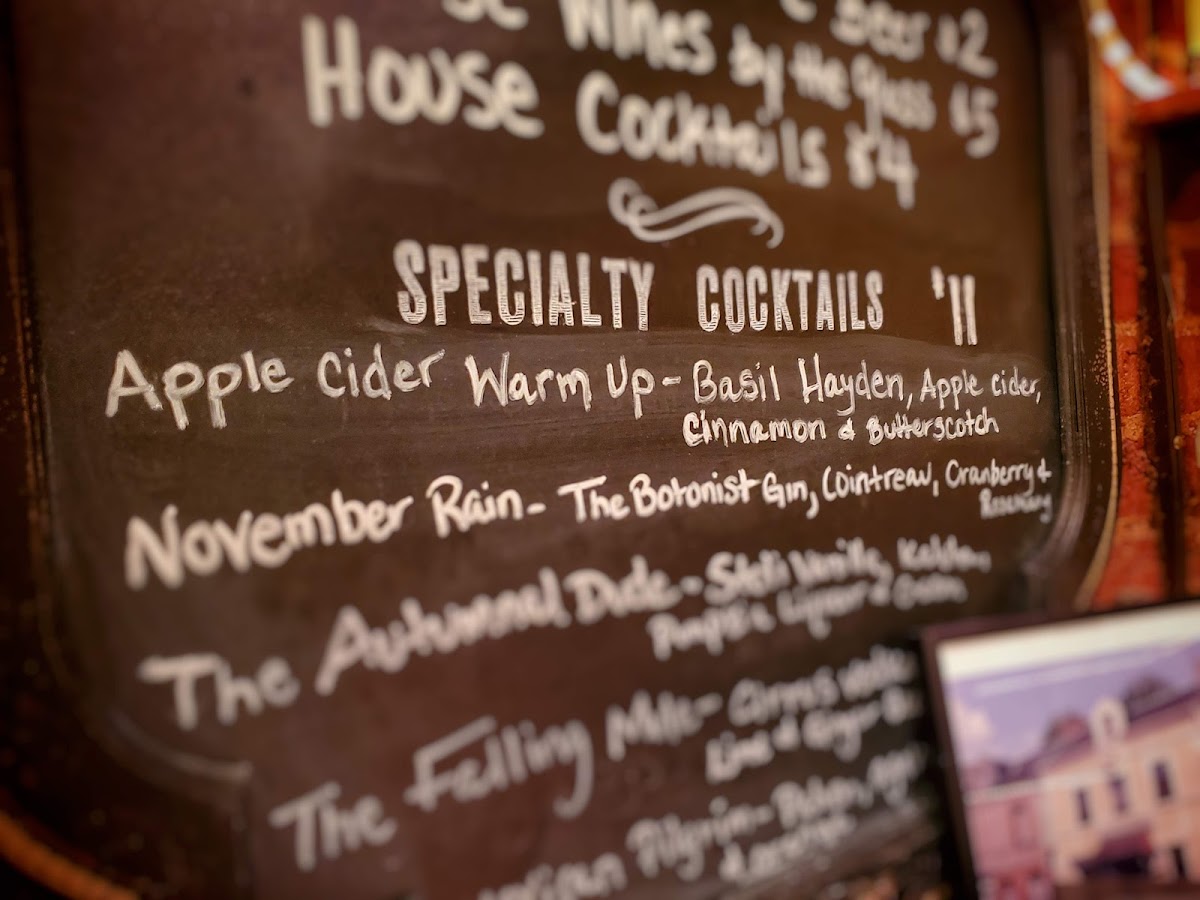 Beer $2
Wines by the glass $5
House Cocktails $4
SPECIALTY COCKTAILS $11
Apple Cider Warm Up - Basil Hayden, Apple cider,
Cinnamon & Butterscotch
November Rain - The Botonist Gin, Cointreau, Cranberry &
Rosemary
The Autumnal Dude - Stoli Vanilla, Kahlua,
Liquor & Cream
The Falling Mule -
Lime & Ginger
Pilgrim -